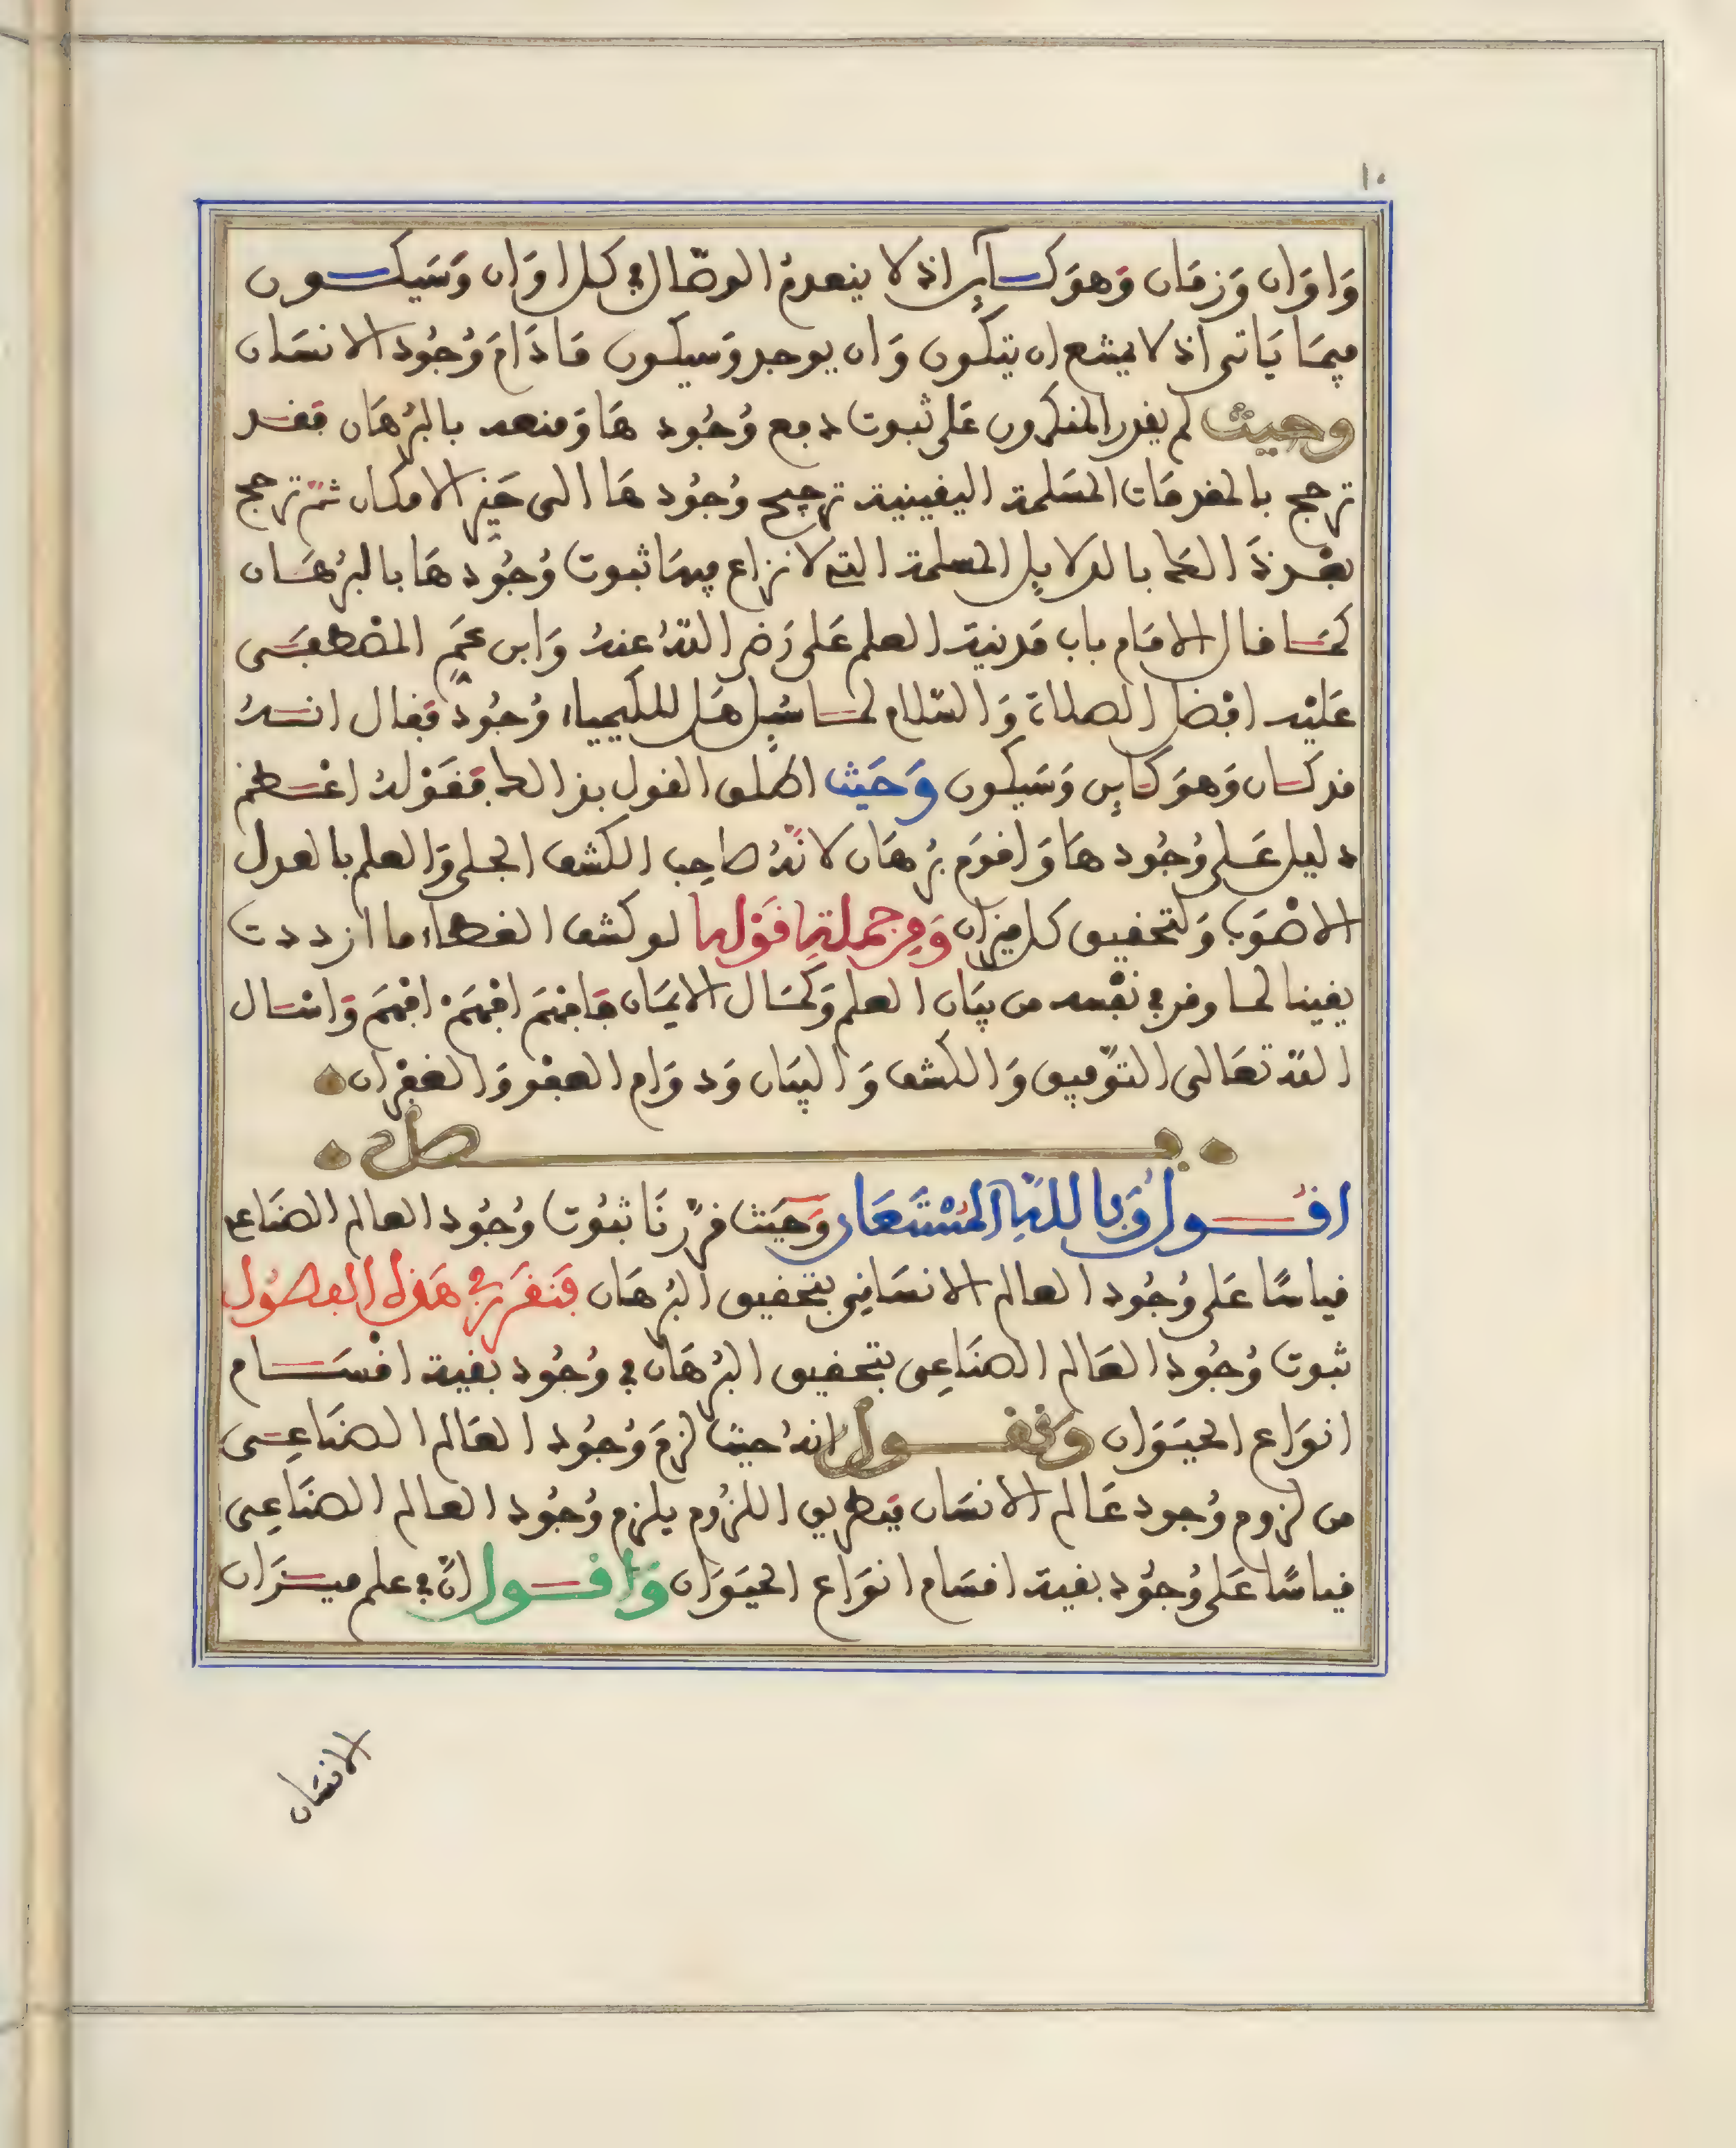 ١٠
وَاوَان وَزمَان وَهوَ كــآىِن اذ لا ينعدمُ الوصّال في كل اوَان وَسَيكــون
فيمَا يَاتى اذ لا يمتنع ان يتكون وَان يوجد وسيكون مَا دَامَ وُجُود الانسَان
وحيث لم يقدر المنكرون عَلى ثبوت دفع وُجُود هَا وَمنعه بالبُرهَان فقــد
ترجح بالمقدمَات المسَلمة اليقينية ترجيح وُجُود هَا الى حَيّز الامكان ثمّ ترجح
بعْــد ذَالكَ بالدلايل المسلمة التي لا نزاع فيهَا ثبوت وُجُود هَا بالبُرهَــان
كمَــا قال الامَام باب مَدنية العلم عَلى رَضي اللهُ عنهُ وَابن عَمّ المصْطفــى
عَليْه افضَل الصلاة وَالسّلام لمــا سُيِل هَل للكيمياء وُجُود فقال انــهُ
قد كــان وَهوَ كَايِن وَسَيكون وَحَيث اطلق القول بذالك فقَوْلهُ اعْــظم
دليل عَــلى وُجُود هَا وَاقوَم بُرهَان لانّهُ صَاحِب الكشف الجــلى وَالعلم بالعدل
الاصْوَب وَلتحقيق كل ميزان وَمِن جملة قَوْله لو كشف الغطــاء ما ازددت
يقينا لمــا وقر في نفْسه من بيَان العلم وَكمَــال الايمَان فافهَم افهَمْ افهَم وَاسْــال
الله تعَالى التوّفيق وَالكشف وَالبيَان وَدوَام العفو وَالغفْران
فــــصل
اقــول وَبالله المُسْتَعَان وَحَيث قرّرنَا ثبُوت وُجُود العالم الصنَاعى
قياسًا عَلى وُجُود العالم الانسَانِي بتحقيق البُرهَان فَنقرَر في هَذه الفصُول
ثبوت وُجُود العَالم الصنَاعِى بتحقيق البُرهَان في وُجُود بقية اقْسَــام
انوَاع الحيَوَان وَنقــول انهُ حيث لزمَ وُجُود العَالم الصنَاعِــى
من لزوم وُجود عَالم الانسَان فبَطريق اللزُوم يلزم وُجُود العالم الصنَاعِى
قياسًا عَلى وُجُود بقية اقسَام انوَاع الحيَوَان وَاقــول انّ في علم ميــزَان
الانسَان